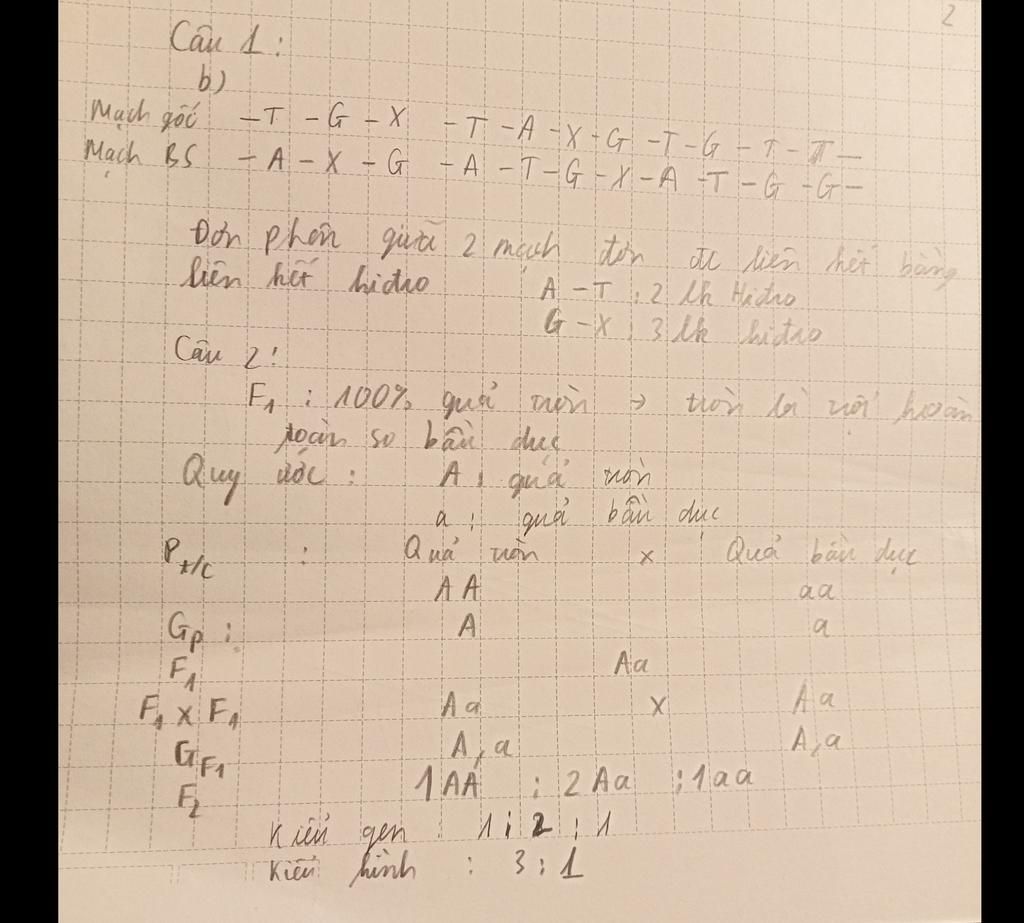 2
Câu 1:
b)
Mạch gốc - T - G - X - T - A - X - G - T - G - T - T -
Mạch BS - A - X - G - A - T - G - X - A - T - G - G -
Đơn phân giữa 2 mạch đơn đc liên kết bằng
liên kết hiđro A - T : 2 lk Hiđro
G - X : 3 lk hiđro
Câu 2:
F1 : 100% quả tròn → tròn là trội hoàn
toàn so bầu dục
Quy ước : A : quả tròn
a : quả bầu dục
Pt/c : Quả tròn x Quả bầu dục
AA aa
Gp : A a
F1 Aa
F1 x F1 Aa x Aa
GF1 A, a A, a
F2 1AA : 2Aa : 1aa
Kiểu gen : 1 : 2 : 1
Kiểu hình : 3 : 1